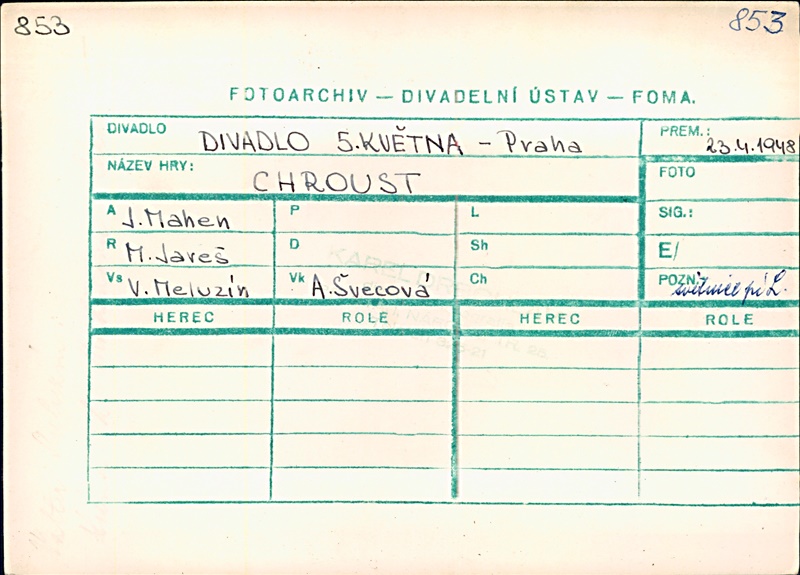 853 853
FOTOARCHIV — DIVADELNÍ ÚSTAV — FOMA.
DIVADLO DIVADLO 5.KVĚTNA - Praha PREM.: 23.4.1948
NÁZEV HRY: CHROUST FOTO
A J.Mahen P L SIG.:
R M.Jareš D Sh E/
Vs V.Meluzín Vk A.Švecová Ch POZN. světnice pí L.
HEREC ROLE HEREC ROLE